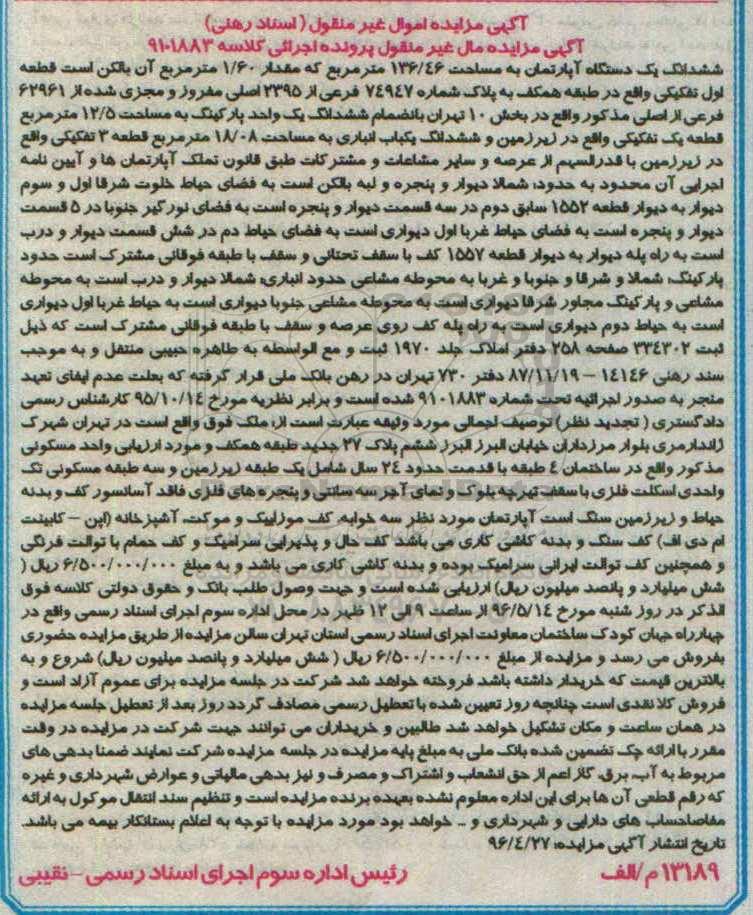 آگهی مزایده اموال غیر منقول ( اسناد رهنی)
آگهی مزایده مال غیر منقول پرونده اجرائی کلاسه ۹۱۰۱۸۸۳
ششدانگ یک دستگاه آپارتمان به مساحت ۱۳۶/۴۶ مترمربع که مقدار ۱/۶۰ مترمربع آن بالکن است قطعه
اول تفکیکی واقع در طبقه همکف به پلاک شماره ۷۴۹۴۷ فرعی از ۲۳۹۵ اصلی مفروز و مجزی شده از ۶۲۹۶۱
فرعی از اصلی مذکور واقع در بخش ۱۰ تهران بانضمام ششدانگ یک واحد پارکینگ به مساحت ۱۲/۵ مترمربع
قطعه یک تفکیکی واقع در زیرزمین و ششدانگ یکباب انباری به مساحت ۱۸/۰۸ مترمربع قطعه ۳ تفکیکی واقع
در زیرزمین با قدرالسهم از عرصه و سایر مشاعات و مشترکات طبق قانون تملک آپارتمان ها و آیین نامه
اجرایی آن محدود به حدود: شمالا دیوار و پنجره و لبه بالکن است به فضای حیاط خلوت شرقا اول و سوم
دیوار به دیوار قطعه ۱۵۵۲ سابق دوم در سه قسمت دیوار و پنجره است به فضای نورگیر جنوبا در ۵ قسمت
دیوار و پنجره است به فضای حیاط غربا اول دیواری است به فضای حیاط دم در شش قسمت دیوار و درب
است به راه پله دیوار به دیوار قطعه ۱۵۵۷ کف با سقف تحتانی و سقف با طبقه فوقانی مشترک است حدود
پارکینگ: شمالا و شرقا و جنوبا و غربا به محوطه مشاعی حدود انباری: شمالا دیوار و درب است به محوطه
مشاعی و پارکینگ مجاور شرقا دیواری است به محوطه مشاعی جنوبا دیواری است به حیاط غربا اول دیواری
است به حیاط دوم دیواری است به راه پله کف روی عرصه و سقف با طبقه فوقانی مشترک است که ذیل
ثبت ۳۳۴۳۰۲ صفحه ۲۵۸ دفتر املاک جلد ۱۹۷۰ ثبت و مع الواسطه به طاهره حبیبی منتقل و به موجب
سند رهنی ۱۴۱۴۶ – ۸۷/۱۱/۱۹ دفتر ۷۳۰ تهران در رهن بانک ملی قرار گرفته که بعلت عدم ایفای تعهد
منجر به صدور اجرائیه تحت شماره ۹۱۰۱۸۸۳ شده است و برابر نظریه مورخ ۹۵/۱۰/۱۴ کارشناس رسمی
دادگستری ( تجدید نظر) توصیف اجمالی مورد وثیقه عبارت است از: ملک فوق واقع است در تهران شهرک
ژاندارمری بلوار مرزداران خیابان البرز البرز ششم پلاک ۲۷ جدید طبقه همکف و مورد ارزیابی واحد مسکونی
مذکور واقع در ساختمان ٤ طبقه با قدمت حدود ۲۴ سال شامل یک طبقه زیرزمین و سه طبقه مسکونی تک
واحدی اسکلت فلزی با سقف تیرچه بلوک و نمای آجر سه سانتی و پنجره های فلزی فاقد آسانسور کف و بدنه
حیاط و زیرزمین سنگ است آپارتمان مورد نظر سه خوابه، کف موزاییک و موکت، آشپزخانه (اپن – کابینت
ام دی اف) کف سنگ و بدنه کاشی کاری می باشد کف حال و پذیرایی سرامیک و کف حمام با توالت فرنگی
و همچنین کف توالت ایرانی سرامیک بوده و بدنه کاشی کاری می باشد و به مبلغ ۶/۵۰۰/۰۰۰/۰۰۰ ریال (
شش میلیارد و پانصد میلیون ریال) ارزیابی شده است و جهت وصول طلب بانک و حقوق دولتی کلاسه فوق
الذکر در روز شنبه مورخ ۹۶/۵/۱۴ از ساعت ۹ الی ۱۲ ظهر در محل اداره سوم اجرای اسناد رسمی واقع در
چهارراه جهان کودک ساختمان معاونت اجرای اسناد رسمی استان تهران سالن مزایده از طریق مزایده حضوری
بفروش می رسد و مزایده از مبلغ ۶/۵۰۰/۰۰۰/۰۰۰ ریال ( شش میلیارد و پانصد میلیون ریال) شروع و به
بالاترین قیمت که خریدار داشته باشد فروخته خواهد شد شرکت در جلسه مزایده برای عموم آزاد است و
فروش کلا نقدی است چنانچه روز تعیین شده با تعطیل رسمی مصادف گردد روز بعد از تعطیل جلسه مزایده
در همان ساعت و مکان تشکیل خواهد شد طالبین و خریداران می توانند جهت شرکت در مزایده در وقت
مقرر با ارائه چک تضمین شده بانک ملی به مبلغ پایه مزایده در جلسه مزایده شرکت نمایند ضمنا بدهی های
مربوط به آب، برق، گاز اعم از حق انشعاب و اشتراک و مصرف و نیز بدهی مالیاتی و عوارض شهرداری و غیره
که رقم قطعی آن ها برای این اداره معلوم نشده بعهده برنده مزایده است و تنظیم سند انتقال موکول به ارائه
مفاصاحساب های دارایی و شهرداری و ... خواهد بود مورد مزایده با توجه به اعلام بستانکار بیمه می باشد.
تاریخ انتشار آگهی مزایده: ۹۶/٤/۲۷
۱۳۱۸۹ م/الف رئیس اداره سوم اجرای اسناد رسمی – نقیبی